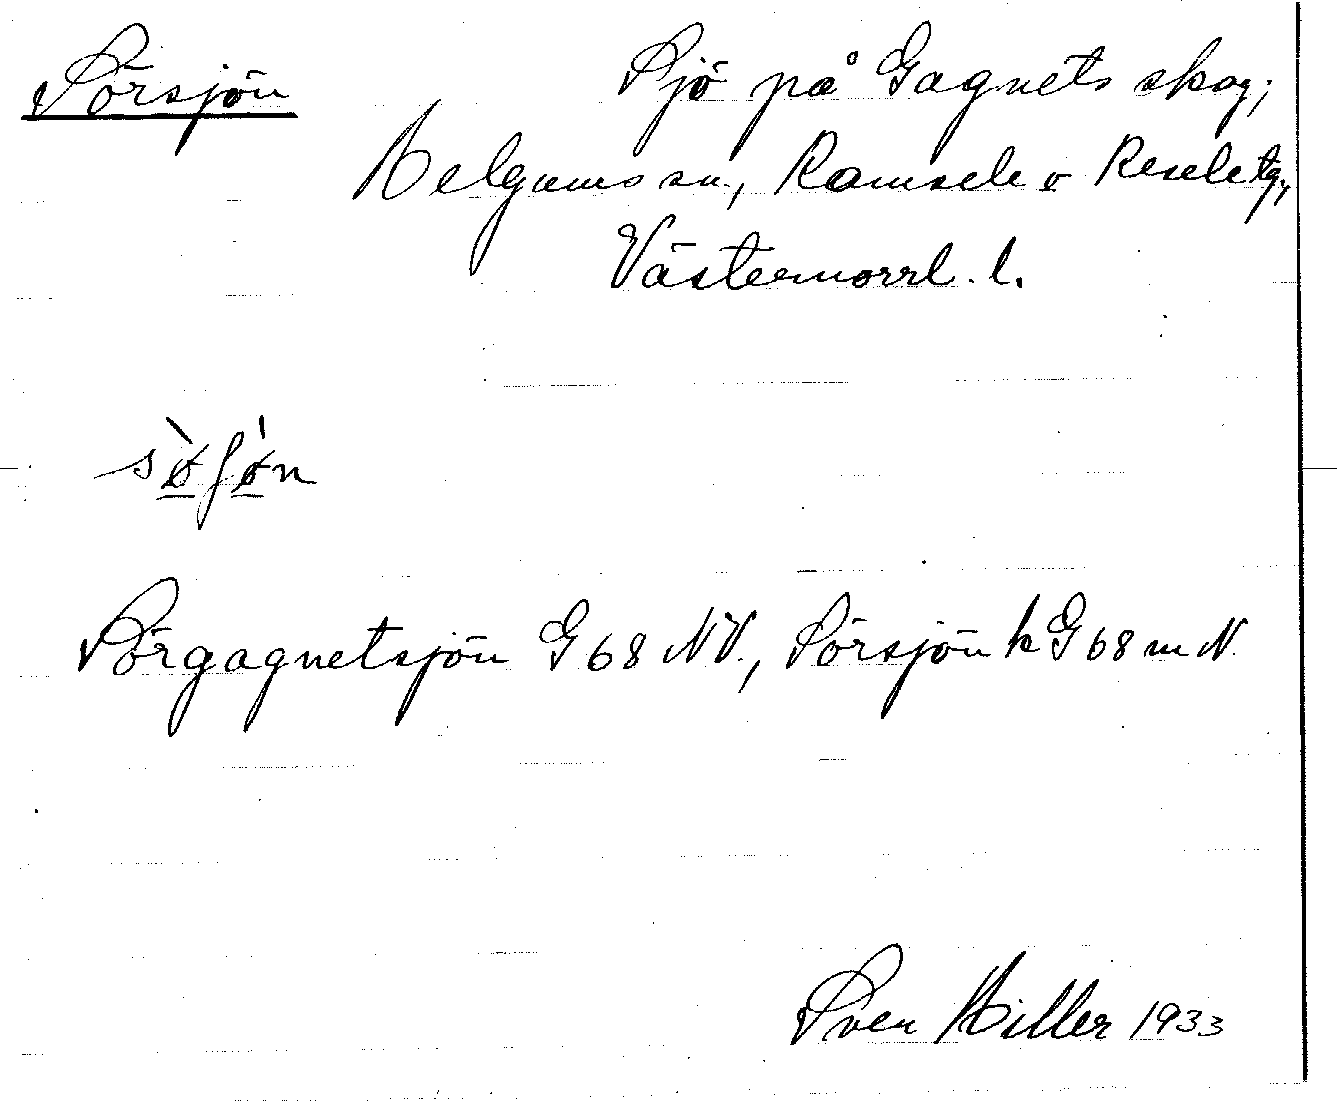 Sörsjön Sjö på Gagnets skog;
Helgums sn., Ramsele o Resele tg.,
Västernorrl. l.
sø̀ʃø̀n
Sörgagnetsjön G 68 NV., Sörsjön k G 68 m N.
Sven Hiller 1933